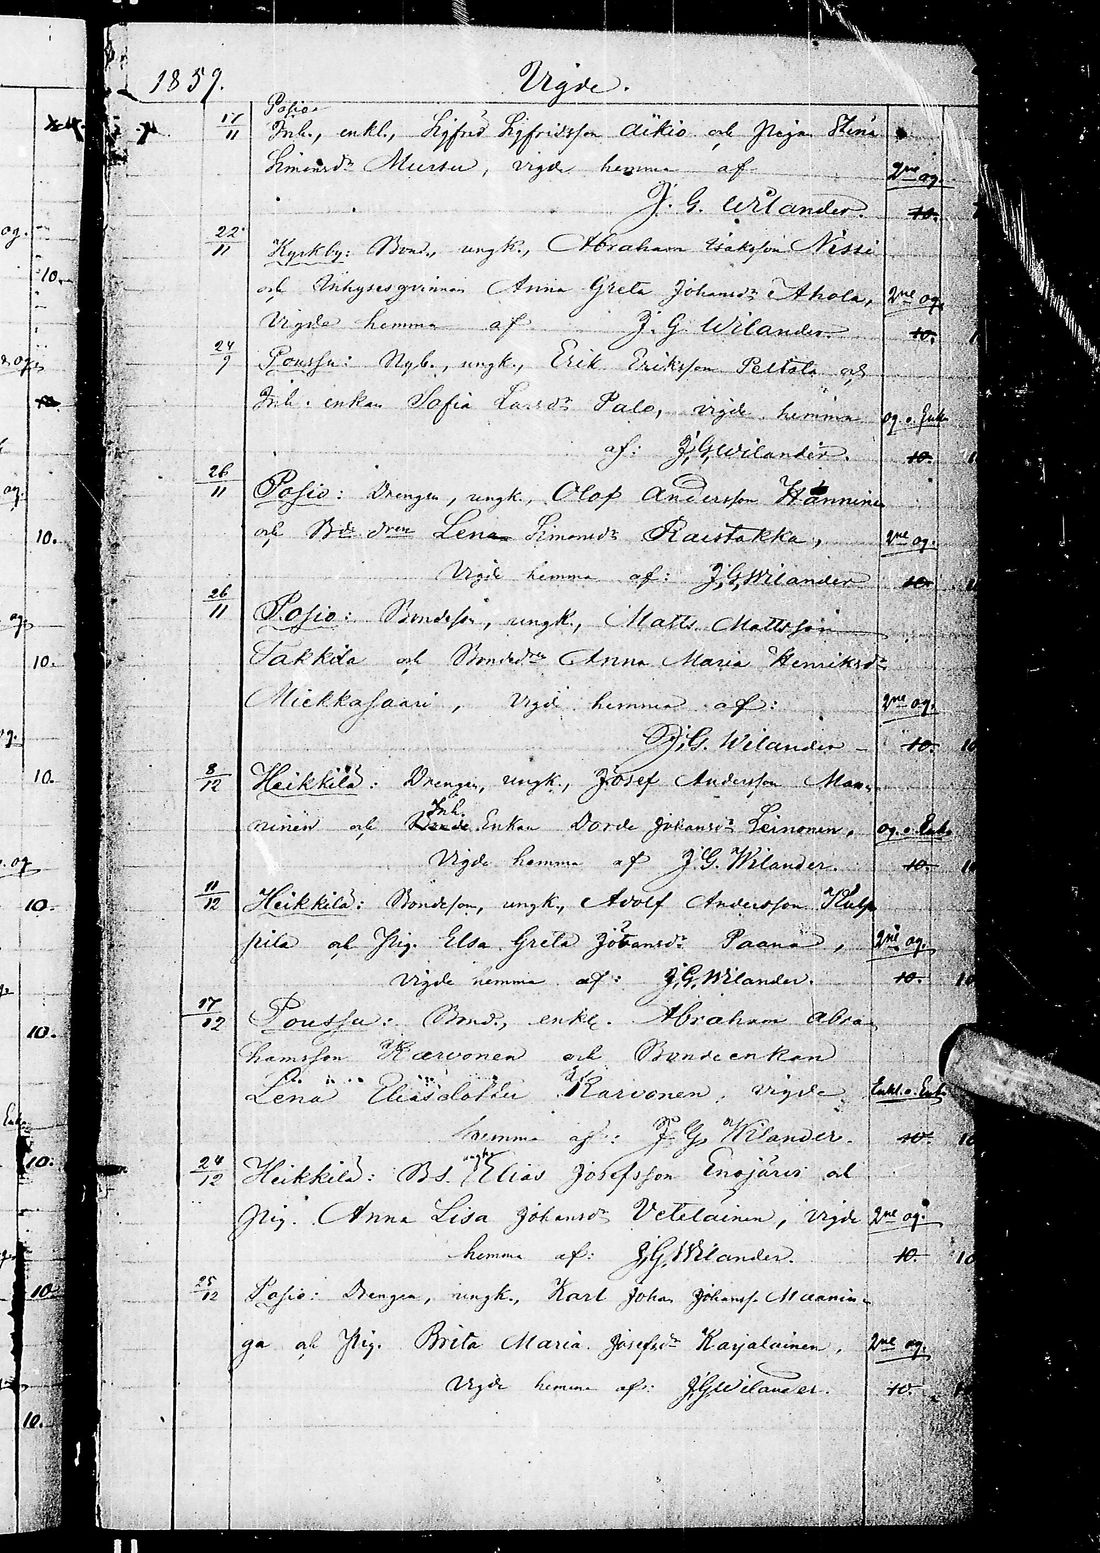 1859. Vigde.
Posio
17/11 Inh., enkl., Sigfrid Sigfridsson Äikiö och Pigan Stina
Simonsdr Mursu, vigde hemma af 2ne og.
J. G. Wilander. 10.
22/11 Kyrkby: Bond., ungk., Abraham Isaksson Nissi
och Inhysesqvinnan Anna Greta Johansdr Ahola, 2ne og.
Vigde hemma af J. G. Wilander. 10.
24/9 Poussu: Nyb., ungk., Erik Eriksson Peltola och
Inh. enkan Sofia Larsdr Palo, vigde hemma og. o. Enka
af: J.G. Wilander. 10.
26/11 Posio: Drengen, ungk., Olof Andersson Hänninen
och Bde dren Lena Simonsdr Raistakka, 2ne og.
Vigde hemma af: J.G. Wilander 10.
26/11 Posio: Bondeson, ungk., Matts Mattsson
Takkila och Bondedrn Anna Maria Henriksdr
Miekkasaari, vigde hemma af: 2ne og.
J.G. Wilander 10. 10
8/12 Heikkilä: Drengen, ungk., Josef Andersson Man-
ninen och Inh. Enkan Dorde Johansdr Leinonen, og. o. Enka
Vigde hemma af J. G. Wilander. 10. 10
11/12 Heikkilä: Bondeson, ungk., Adolf Andersson Kulp
pila och Pig. Elsa Greta Johansdr Paana, 2ne og.
Vigde hemma af: J.G. Wilander. 10. 10
17/12 Poussu: Bond., enkl. Abraham Abra-
hamsson Karvonen och Bondeenkan
Lena Eliasdotter Karvonen, vigde Enkl. o. Enka
hemma af: J. G. Wilander. 10. 10
24/12 Heikkilä: Bs. ungk. Elias Josefsson Enojärvi och
Pig. Anna Lisa Johansdr Vetelainen, vigde 2ne og.
hemma af: J.G. Wilander. 10. 10
25/12 Posio: Drengen, ungk., Karl Johan Johanss. Maanin-
ga och Pig. Brita Maria Josefsdr Karjalainen, 2ne og.
Vigde hemma af: J.G. Wilander. 10.